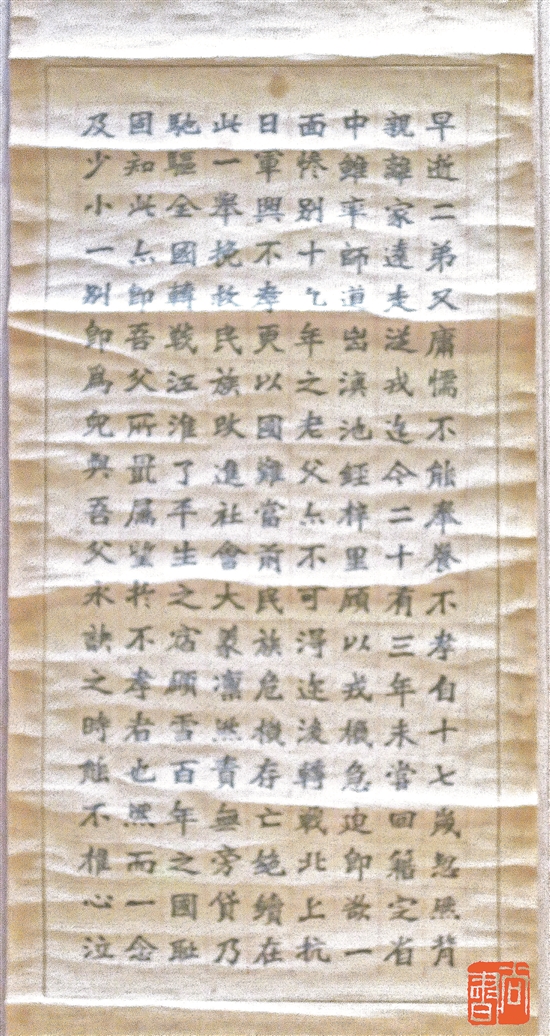 早逝二弟又庸懦不能奉養不孝自十七歲忽然背
親離家遠走從戎迄今二十有三年未嘗回籍定省
中雖率師道出滇池經梓里顧以戎機急迫即欲一
面慘別十七年之老父亦不可得迨後轉戰北上抗
日軍興不孝更以國難當前民族危機存亡絕續在
此一舉挽救民族改進社會大業凜然責無旁貸乃
馳驅全國轉戰江淮了平生之宿願雪百年之國恥
固知此亦即吾父所属望於不孝者也然而一念
及少小一別即為兒與吾父永訣之時能不摧心泣
尚書